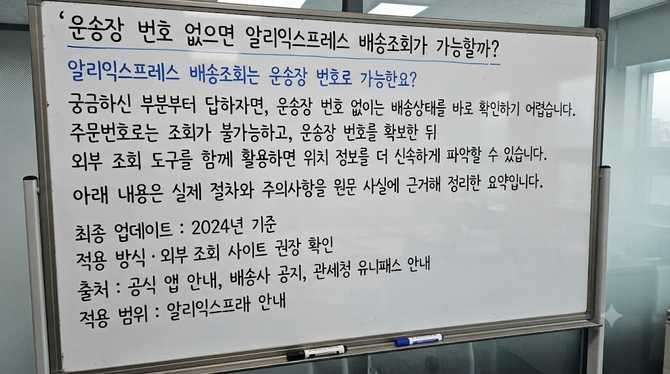 ‘운송장 번호 없으면 알리익스프레스 배송조회가 가능할까?
알리익스프레스 배송조회는 운송장 번호로 가능한요?
궁금하신 부분부터 답하자면, 운송장 번호 없이는 배송상태를 바로 확인하기 어렵습니다.
주문번호로는 조회가 불가능하고, 운송장 번호를 확보한 뒤
외부 조회 도구를 함께 활용하면 위치 정보를 더 신속하게 파악할 수 있습니다.
아래 내용은 실제 절차와 주의사항을 원문 사실에 근거해 정리한 요약입니다.
최종 업데이트 : 2024년 기준
적용 방식·외부 조회 사이트 권장 확인
출처 : 공식 앱 안내, 배송사 공지, 관세청 유니패스 안내
적용 범위 : 알리익스프래 안내